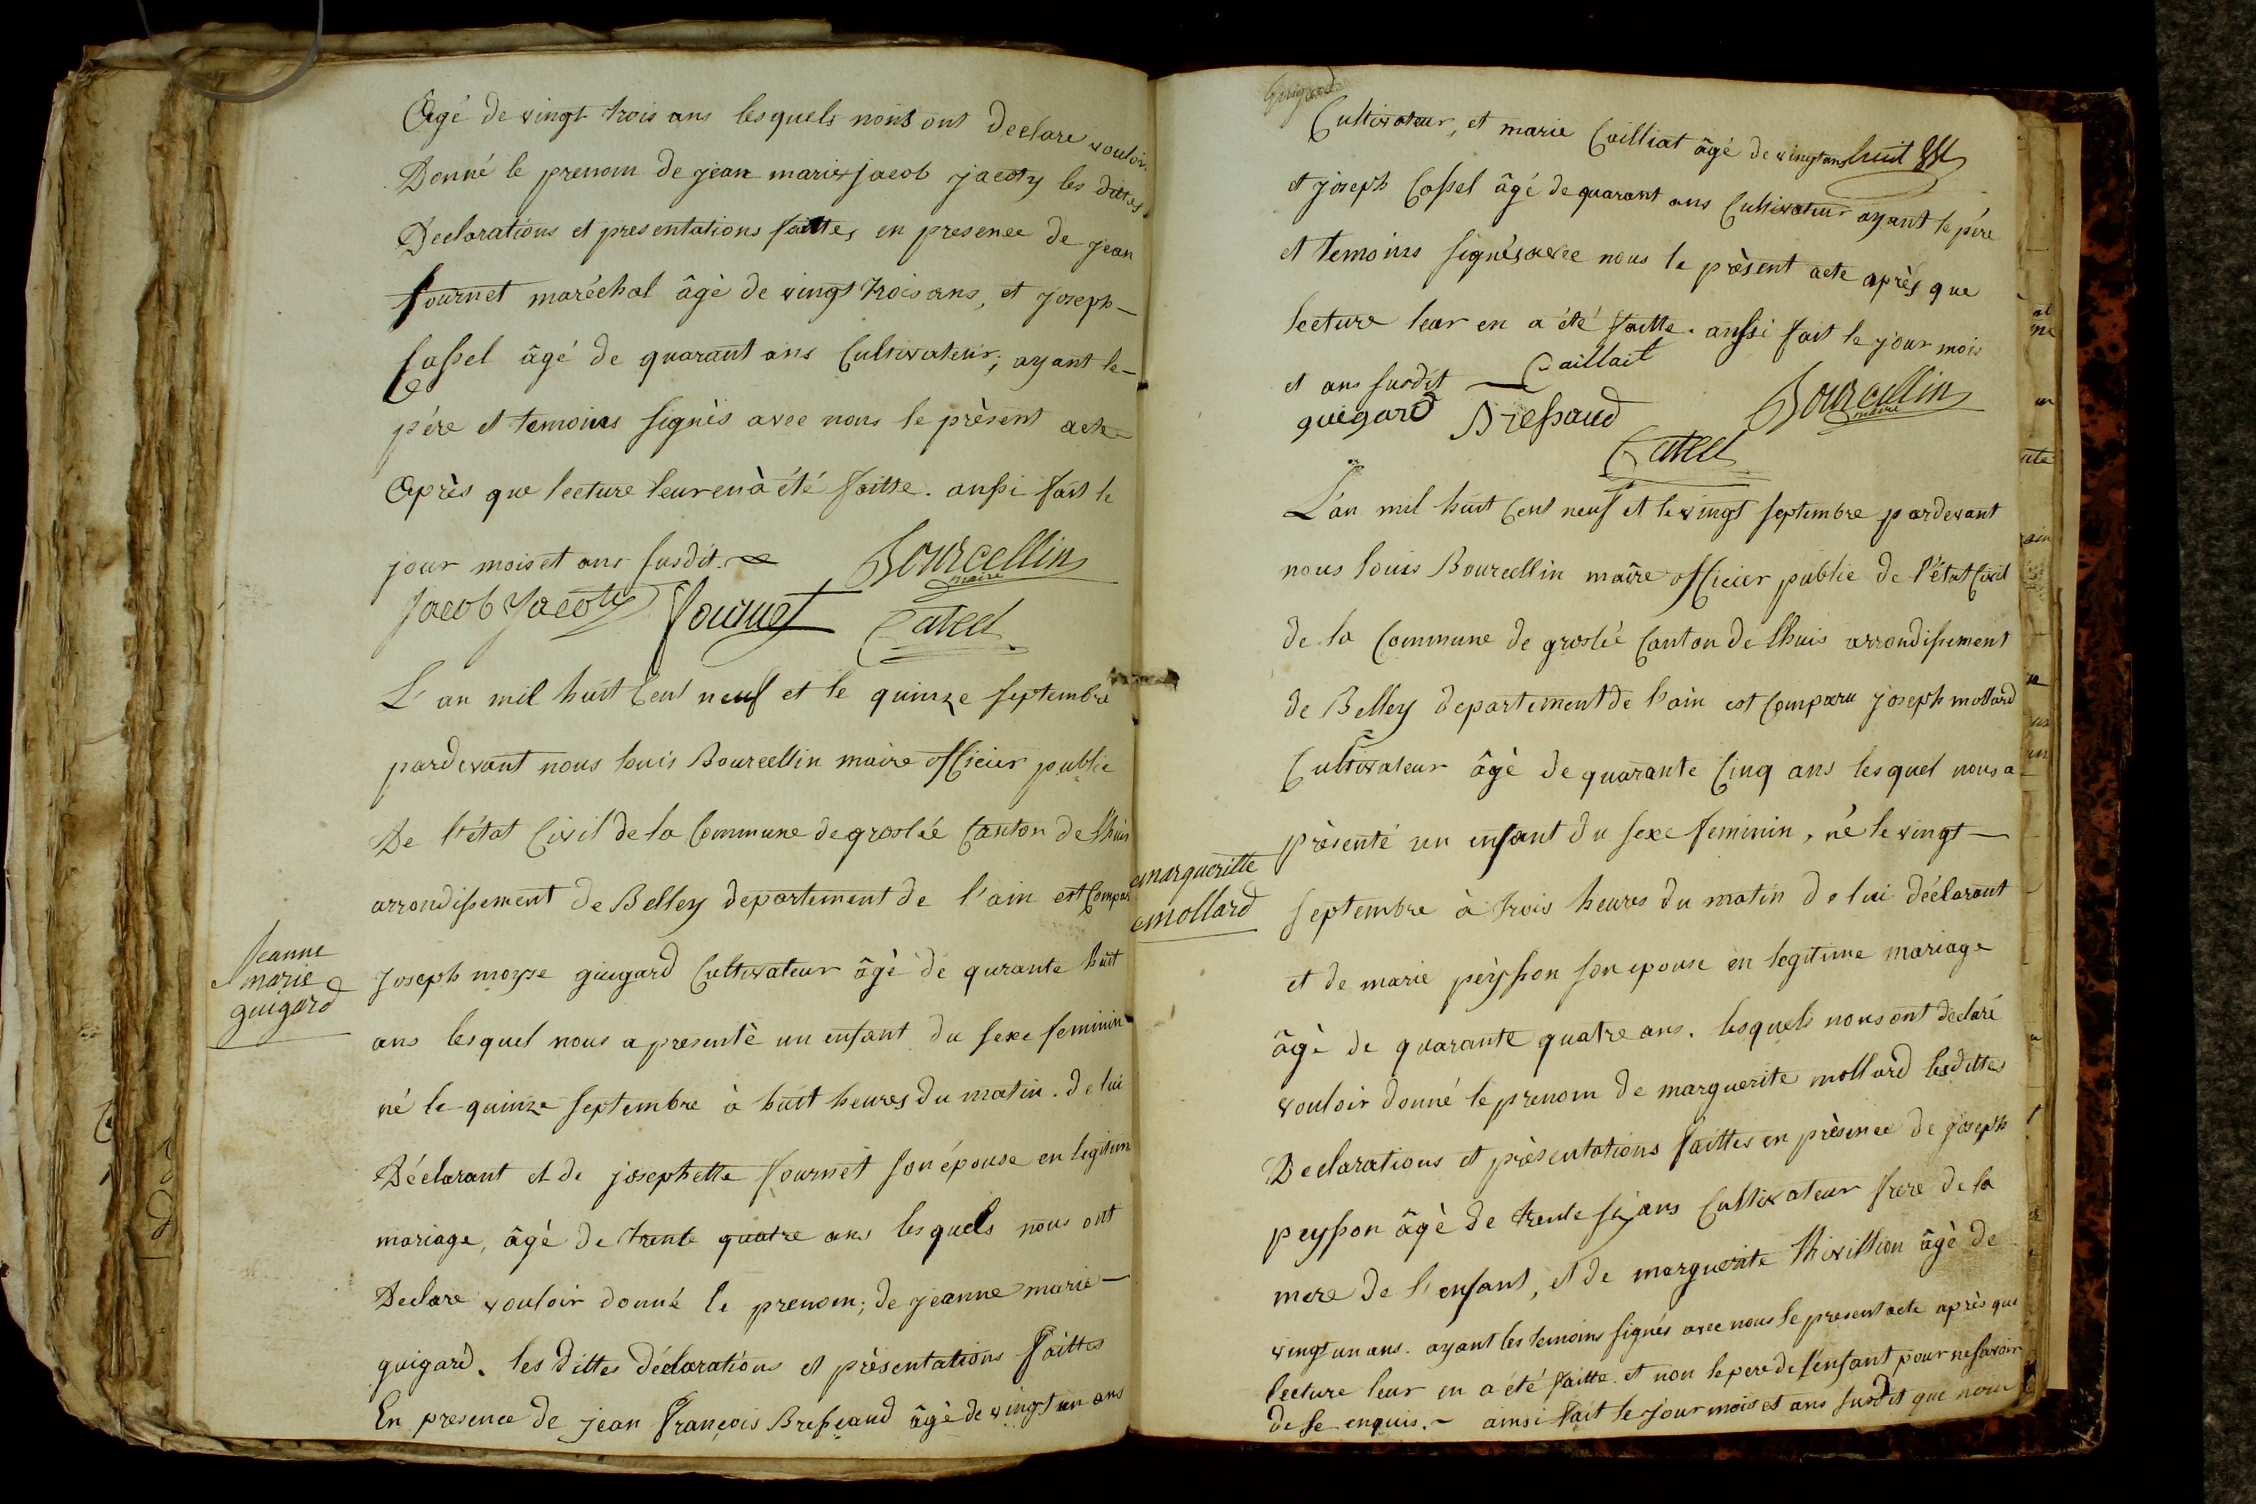 Agé de vingt trois ans lesquels nous ont declare vouloir
Donné le prenom de jean marie jacob jacoty les dittes
Declarations et presentations faittes en presence de jean
fournet maréchal âgè de vingt trois ans, et joseph
Cassel âgé de quarant ans Cultivateur; ayant le
pére et temoins signés avec nous le prèsent acte
Après que lecture leur en à été faitte. aussi fait le
jour mois et ans susdit.
Bourcellin
maire
Jacob Jacoty fournet Catel
L'an mil huit Cent neuf et le quinze septembre
pardevant nous louis Bourcellin maire officier public
De l'état Civil de la Commune de groslée Canton de lhuis
arrondissement de Belley departement de l'ain est Compar
Jeanne
marie
guigard
joseph moyse guigard Cultivateur âgè de qurante huit
ans lesquel nous a presentè un enfant du sexe feminin
né le quinze septembre à huit heures du matin. de lui
Déclarant et de josephette fournet son épouse en legitim
mariage, âgè de trente quatre ans lesquels nous ont
Declare vouloir donné le prenom; de jeanne marie
guigard. les dittes déclarations et prèsentations faittes
En presence de jean françois Bressaud âgè de vingt un ans
guigard
Cultivateur, et marie Cailliat âgé de vingt ans huit
et joseph Cassel âgé de quarant ans Cultivateur ayant le pére
et temoins signés avec nous le prèsent acte aprés que
lecture leur en a été faitte. aussi fait le jour mois
et ans susdit Caillait
guigard Bressaud Bourcellin
maire
Catel
L'an mil huit Cent neuf et le vingt septembre pardevant
nous louis Bourcellin maîre officier public de l'état Civil
de la Commune de groslée Canton de lhuis arrondissement
de Belley departement de l'ain est Comparu joseph mollard
Cultivateur âgè de quarante Cinq ans lesquel nous a
margueritte
mollard
prèsenté un enfant du sexe feminin, né le vingt
septembre à trois heures du matin de lui déclarant
et de marie peysson son epouse en legitime mariage
âgè de quarante quatre ans. lesquels nous ont declaré
vouloir donné le prenom de marguerite mollard les dittes
Declarations et prèsentations faittes en prèsence de joseph
peysson âgè de trente six ans Cultivateur frere de la
mere de l'enfant, et de marguerite thivillion âgè de
vingt un ans. ayant les temoins signés avec nous le present acte après que
lecture leur en a été faitte. et non le pere de l'enfant pour ne savoir
de ce enquis. ainsi fait le jour mois et ans susdit que nous